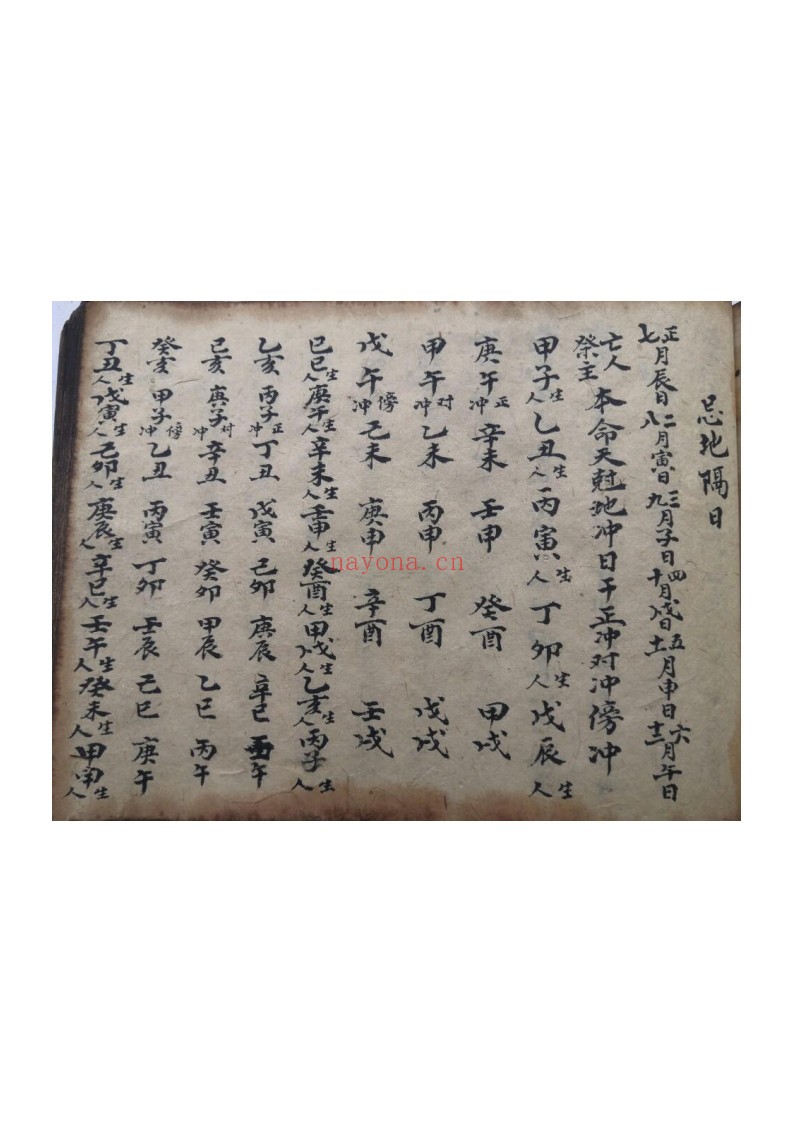 忌地隔日
正七月辰日 二八月寅日 三九月子日 四十月戌日 五十一月申日 六十二月午日
亡人祭主本命天尅地冲日干正冲对冲傍冲
甲子生人乙丑生人丙寅生人丁卯生人戊辰生人
庚午正冲辛未 壬申 癸酉 甲戌
甲午对冲乙未 丙申 丁酉 戊戌
戊午傍冲己未 庚申 辛酉 壬戌
巳巳生人庚午生人辛未生人壬申生人癸酉生人甲戌生人乙亥生人丙子生人
乙亥 丙子正冲丁丑 戊寅 己卯 庚辰 辛巳 壬午
己亥 庚子对冲辛丑 壬寅 癸卯 甲辰 乙巳 丙午
癸亥 甲子傍冲乙丑 丙寅 丁卯 壬辰 己巳 庚午
丁丑生人戊寅生人己卯生人庚辰生人辛巳生人壬午生人癸未生人甲申生人
nayona.cn